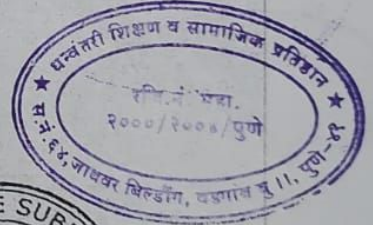 ★ धन्वंतरी शिक्षण व सामाजिक प्रतिष्ठान ★
रजि.नं. महा.
२०००/२००४/पुणे
स.नं.६४, जाधवर बिल्डींग, वडगांव बु ।।, पुणे-४१
E SUB